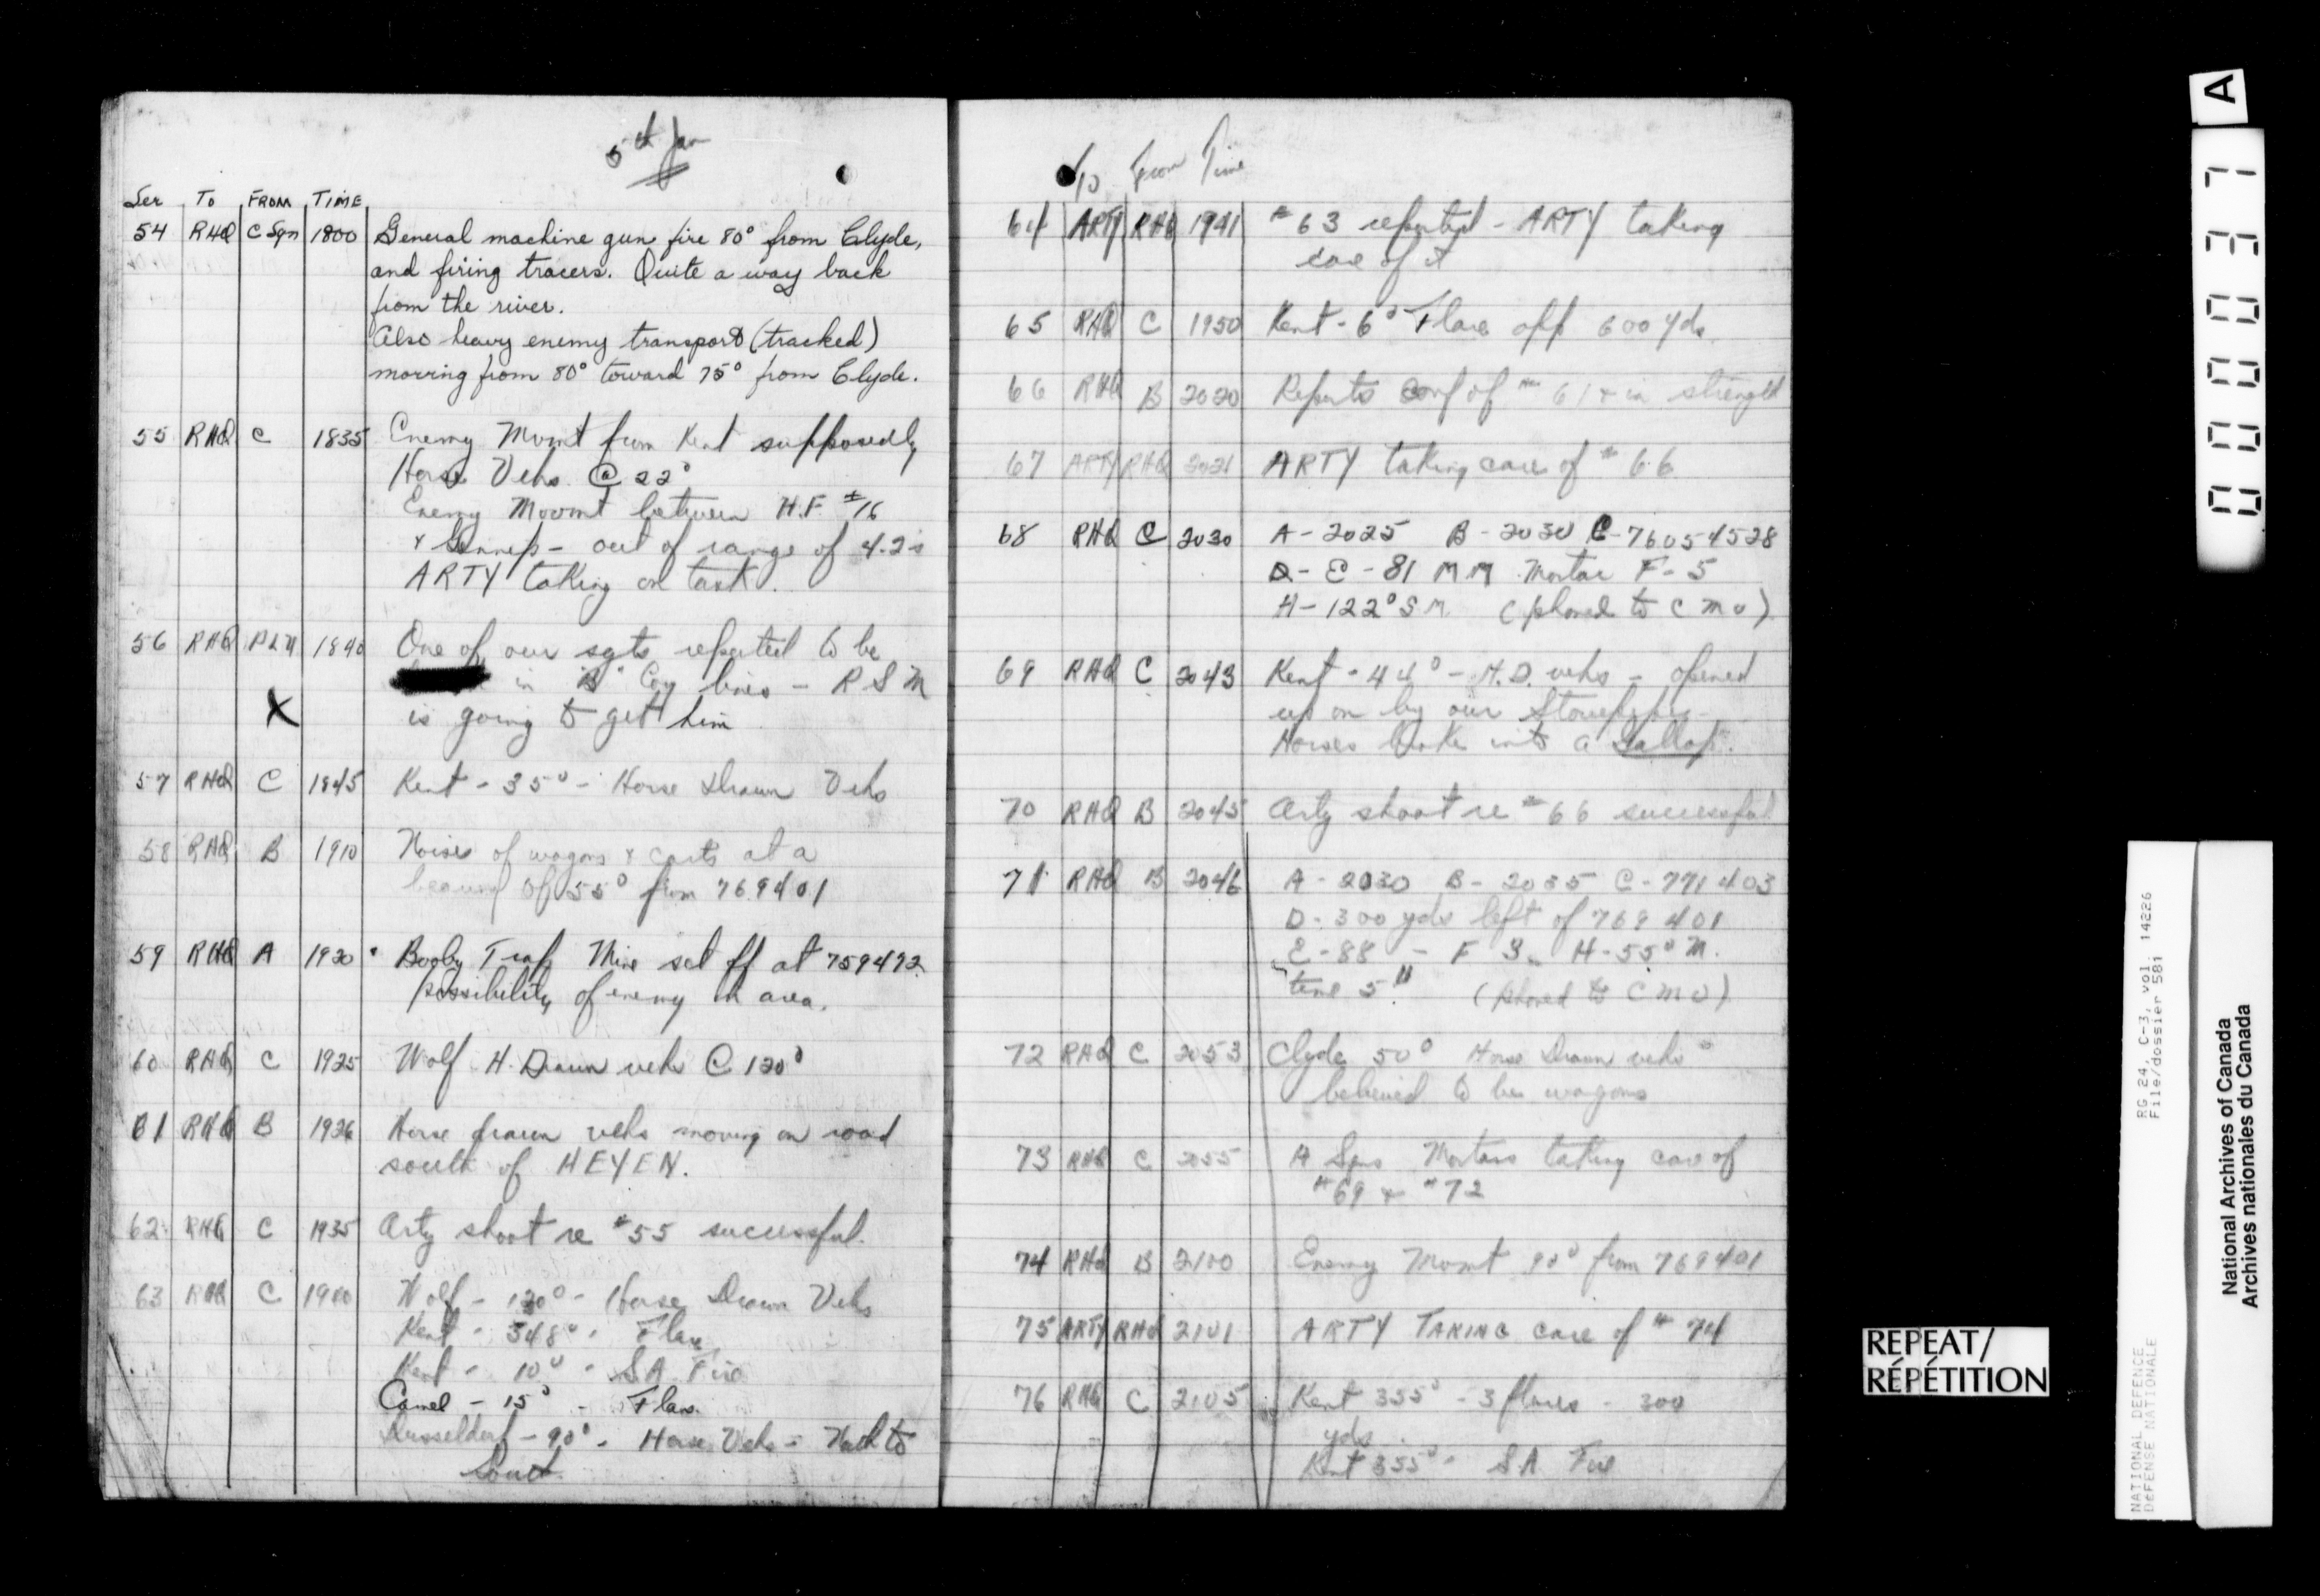 5th Jan
Ser To FROM TIME
54 RHQ C Sqn 1800 General machine gun fire 80° from Clyde,
and firing tracers. Quite a way back
from the river.
Also heavy enemy transport (tracked)
moving from 80° toward 75° from Clyde.
55 RHQ C 1835 Enemy Movmt from Kent supposedly
Horse Vehs. @ 22°
Enemy Movmt between H.F. #16
& Gennep - out of range of 4.2s
ARTY taking on task.
56 RHQ 1840 One of our sgts reported to be
in "B" Coy lines - RSM
X is going to get him
57 RHQ C 1845 Kent - 35° - Horse Drawn Vehs
58 RHQ B 1910 Noises of wagons & carts at a
bearing of 55° from 769401
59 RHQ A 1920 Booby Trap Mine set off at 759492
possibility of enemy in area.
60 RHQ C 1925 Wolf H. Drawn vehs @ 120°
61 RHQ B 1926 Horse drawn vehs moving on road
south of HEYEN.
62 RHQ C 1935 Arty shoot re #55 successful.
63 RHQ C 1940 Wolf - 120° - Horse Drawn Vehs
Kent - 348° - Flare
Kent - 10° - S.A. Fire
Camel - 15° - Flare
Dusseldorf - 90° - Horse Vehs - North to
South
To From Time
64 ARTY RHQ 1941 #63 reported - ARTY taking
care of it
65 RHQ C 1950 Kent - 6° Flare off 600 yds.
66 RHQ B 2020 Reports conf of #61 & in strength
67 ARTY RHQ 2021 ARTY taking care of #66
68 RHQ C 2030 A - 2025 B - 2030 C - 76054528
D - E - 81 MM Mortar F - 5
H - 122° S.M. (phoned to CMO)
69 RHQ C 2043 Kent - 44° - H.D. vehs - opened
up on by our
Horses broke into a Gallop.
70 RHQ B 2045 Arty shoot re #66 successful
71 RHQ B 2046 A - 2030 B - 2035 C - 771403
D - 300 yds left of 769401
E - 88 - F 3. H - 55° M.
time 5" (phoned to CMO)
72 RHQ C 2053 Clyde 50° Horse Drawn vehs
believed to be wagons
73 RHQ C 2055 Mortars taking care of
#69 & #72
74 RHQ B 2100 Enemy Movmt 90° from 769401
75 ARTY RHQ 2101 ARTY TAKING care of #74
76 RHQ C 2105 Kent 355° - 3 flares - 300
yds.
Kent 355° - S.A. Fire
A
000037
RG 24, C-3, vol. 14226
File/dossier 581
NATIONAL DEFENCE
DÉFENSE NATIONALE
National Archives of Canada
Archives nationales du Canada
REPEAT/
RÉPÉTITION